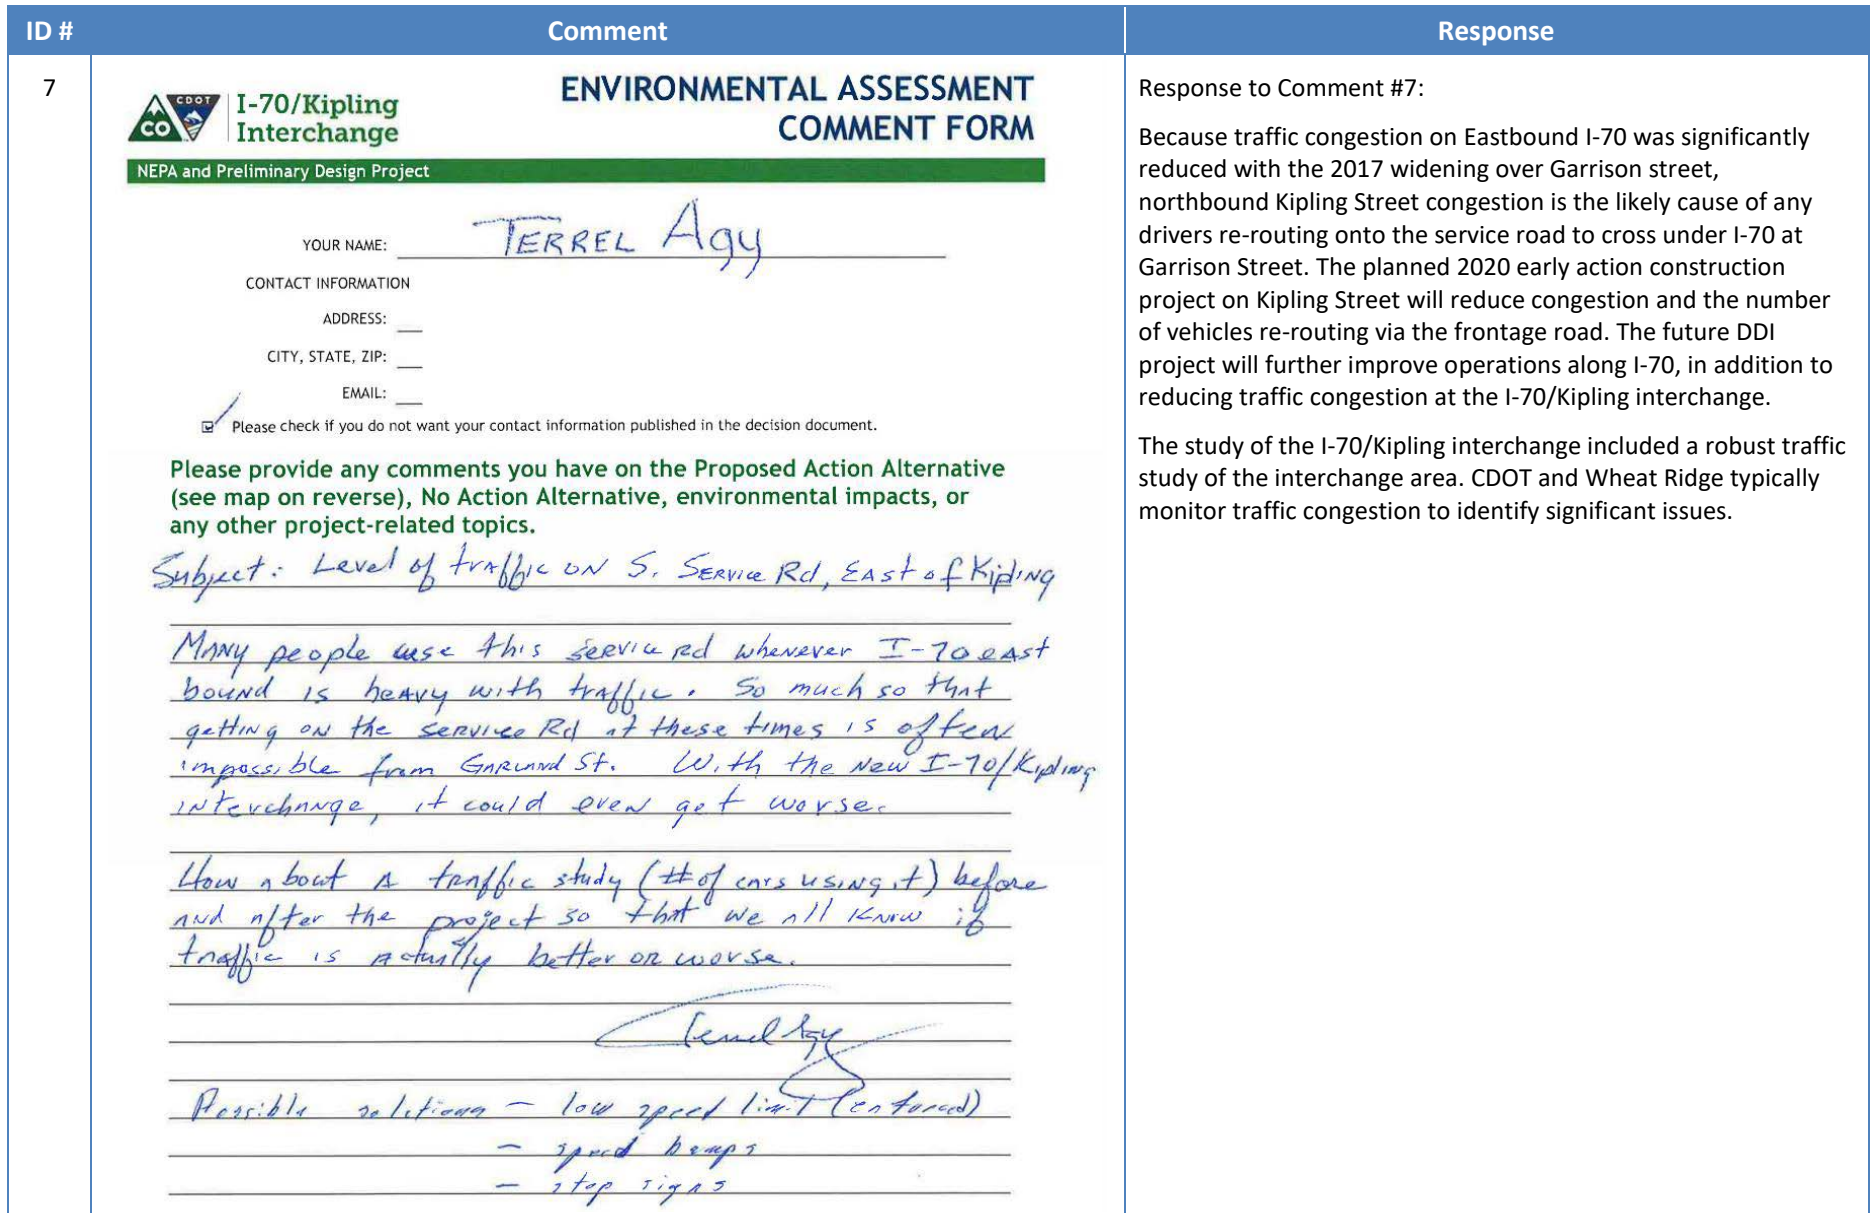 ID #
Comment
Response
7
CDOT
CO
I-70/Kipling
Interchange
ENVIRONMENTAL ASSESSMENT
COMMENT FORM
NEPA and Preliminary Design Project
YOUR NAME: TERREL Agy
CONTACT INFORMATION
ADDRESS:
CITY, STATE, ZIP:
EMAIL:
Please check if you do not want your contact information published in the decision document.
Please provide any comments you have on the Proposed Action Alternative
(see map on reverse), No Action Alternative, environmental impacts, or
any other project-related topics.
Subject: Level of traffic on S. Service Rd, East of Kipling
Many people use this service rd whenever I-70 east
bound is heavy with traffic. So much so that
getting on the service Rd at these times is often
impossible from Garland St. With the new I-70/Kipling
interchange, it could even get worse.
How about a traffic study (# of cars using it) before
and after the project so that we all know if
traffic is actually better or worse.
Terrel Agy
Possible solutions - low speed limit (enforced)
- speed bumps
- stop signs
Response to Comment #7:
Because traffic congestion on Eastbound I-70 was significantly
reduced with the 2017 widening over Garrison street,
northbound Kipling Street congestion is the likely cause of any
drivers re-routing onto the service road to cross under I-70 at
Garrison Street. The planned 2020 early action construction
project on Kipling Street will reduce congestion and the number
of vehicles re-routing via the frontage road. The future DDI
project will further improve operations along I-70, in addition to
reducing traffic congestion at the I-70/Kipling interchange.
The study of the I-70/Kipling interchange included a robust traffic
study of the interchange area. CDOT and Wheat Ridge typically
monitor traffic congestion to identify significant issues.